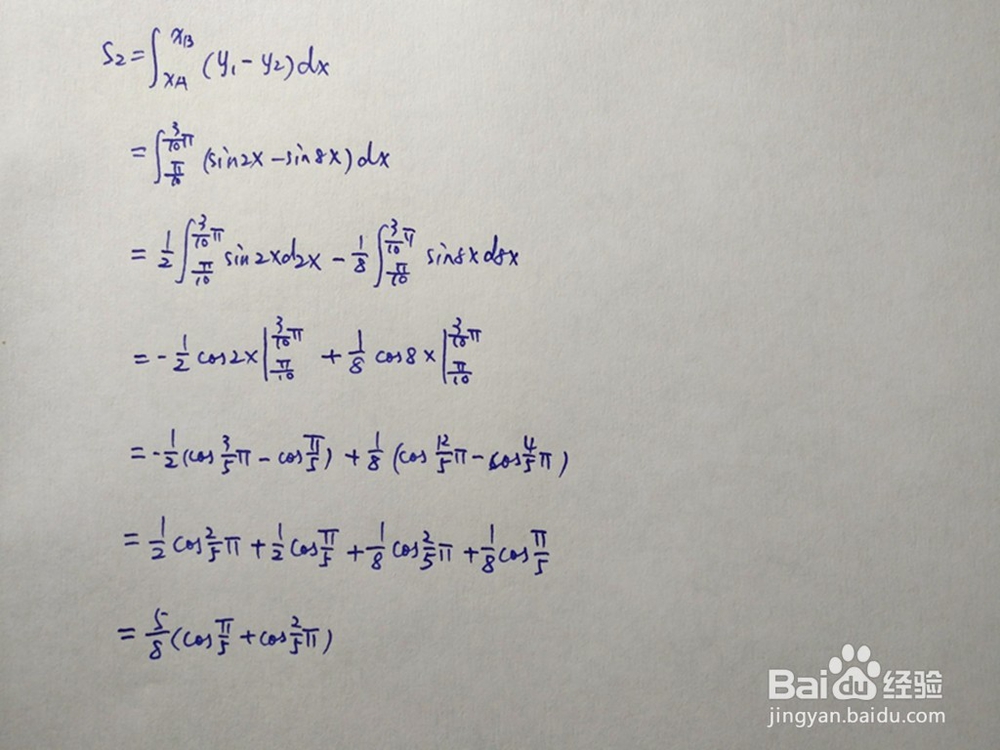 S₂=∫_{xA}^{xB} (y₁-y₂)dx
=∫_{π/10}^{3/10π} (sin2x-sin8x)dx
=1/2∫_{π/10}^{3/10π} sin2xd2x-1/8∫_{π/10}^{3/10π} sin8xd8x
=-1/2cos2x|_{π/10}^{3/10π}+1/8cos8x|_{π/10}^{3/10π}
=-1/2(cos3/5π-cosπ/5)+1/8(cos12/5π-cos4/5π)
=1/2cos2/5π+1/2cosπ/5+1/8cos2/5π+1/8cosπ/5
=5/8(cosπ/5+cos2/5π)
Baidu经验
jingyan.baidu.com